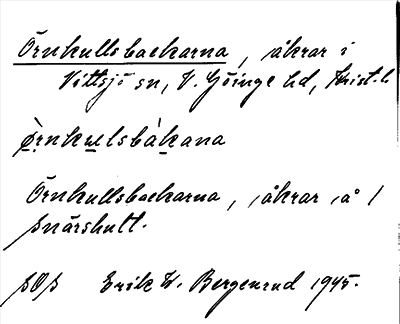 Örnkullsbackarna, åkrar i
Vittsjö sn, V. Göinge hd, Krist. l.
ö̀rnkulsbàkana
Örnkullsbackarna, åkrar å 1
Snärshult.
SOS Erik W. Bergenrud 1945.